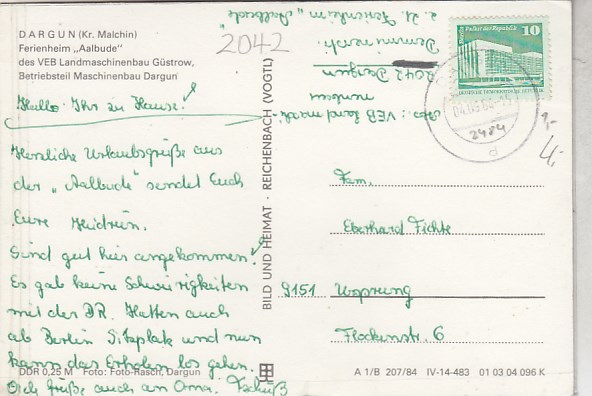 DARGUN (Kr. Malchin)
Ferienheim „Aalbude"
des VEB Landmaschinenbau Güstrow,
Betriebsteil Maschinenbau Dargun
Hallo Ihr zu Hause!
Herzliche Urlaubsgrüße aus
der „Aalbude" sendet Euch
Eure Heidrun.
Sind gut hier angekommen!
Es gab keine Schwierigkeiten
mit der DR. Hatten auch
ab Berlin Sitzplatz und nun
kann das Erholen los gehen.
Grüße auch an Oma. Tschüß
DDR 0,25 M Foto: Foto-Rasch, Dargun
BILD UND HEIMAT · REICHENBACH (VOGTL)
2042
Abs.: VEB Landmasch
nenbau
2042 Dargun
z. Zt. Ferienheim „Aalbude"
10
2484
d
Fam.
Eberhard Fichte
9151 Ursprung
Flockenstr. 6
A 1/B 207/84 IV-14-483 01 03 04 096 K